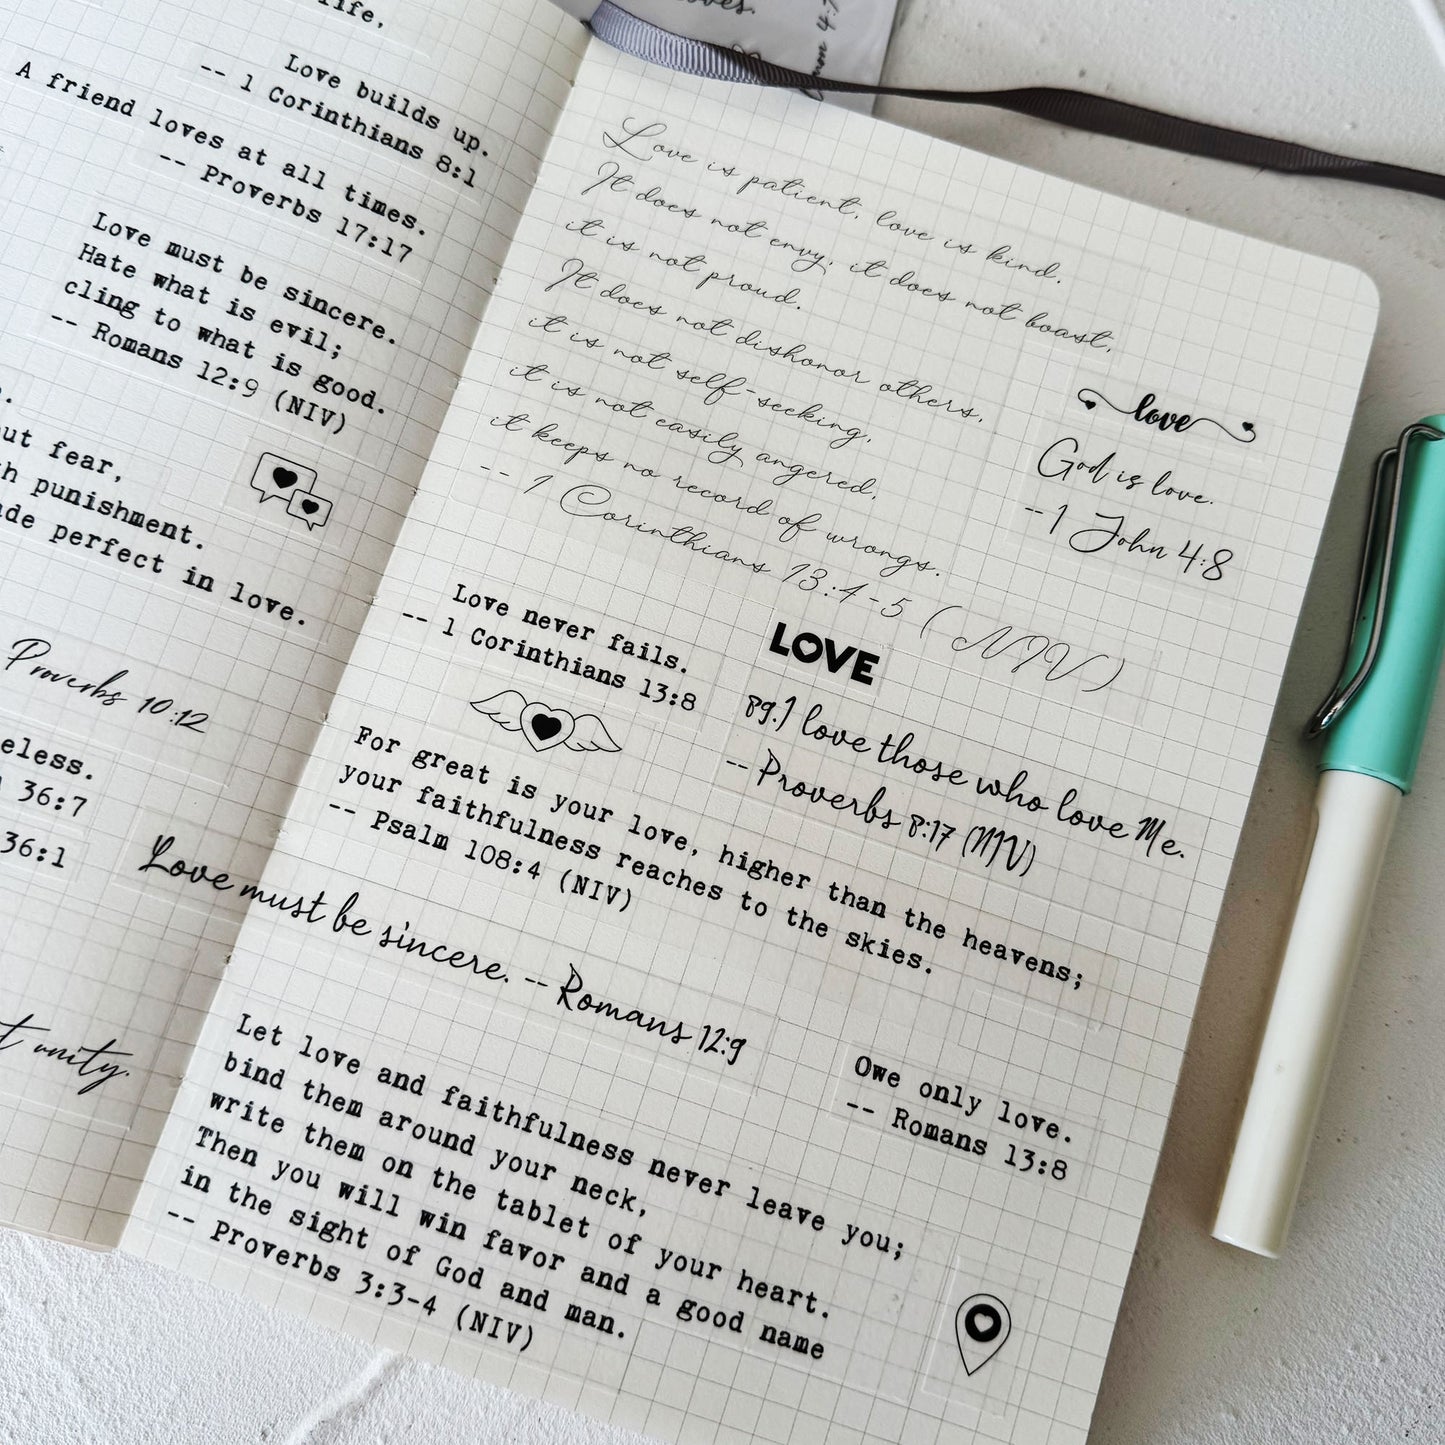 life,
Love builds up.
-- 1 Corinthians 8:1
A friend loves at all times.
-- Proverbs 17:17
Love must be sincere.
Hate what is evil;
cling to what is good.
-- Romans 12:9 (NIV)
ut fear,
h punishment.
de perfect in love.
Proverbs 10:12
eless.
36:7
36:1
t unity.
oves.
4:7
Love is patient, love is kind.
It does not envy, it does not boast,
it is not proud.
It does not dishonor others,
it is not self-seeking,
it is not easily angered,
it keeps no record of wrongs.
-- 1 Corinthians 13:4-5 (NIV)
love
God is love.
--1 John 4:8
Love never fails.
-- 1 Corinthians 13:8
LOVE
89.I love those who love Me.
-- Proverbs 8:17 (NIV)
For great is your love, higher than the heavens;
your faithfulness reaches to the skies.
-- Psalm 108:4 (NIV)
Love must be sincere. -- Romans 12:9
Let love and faithfulness never leave you;
bind them around your neck,
write them on the tablet of your heart.
Then you will win favor and a good name
in the sight of God and man.
-- Proverbs 3:3-4 (NIV)
Owe only love.
-- Romans 13:8